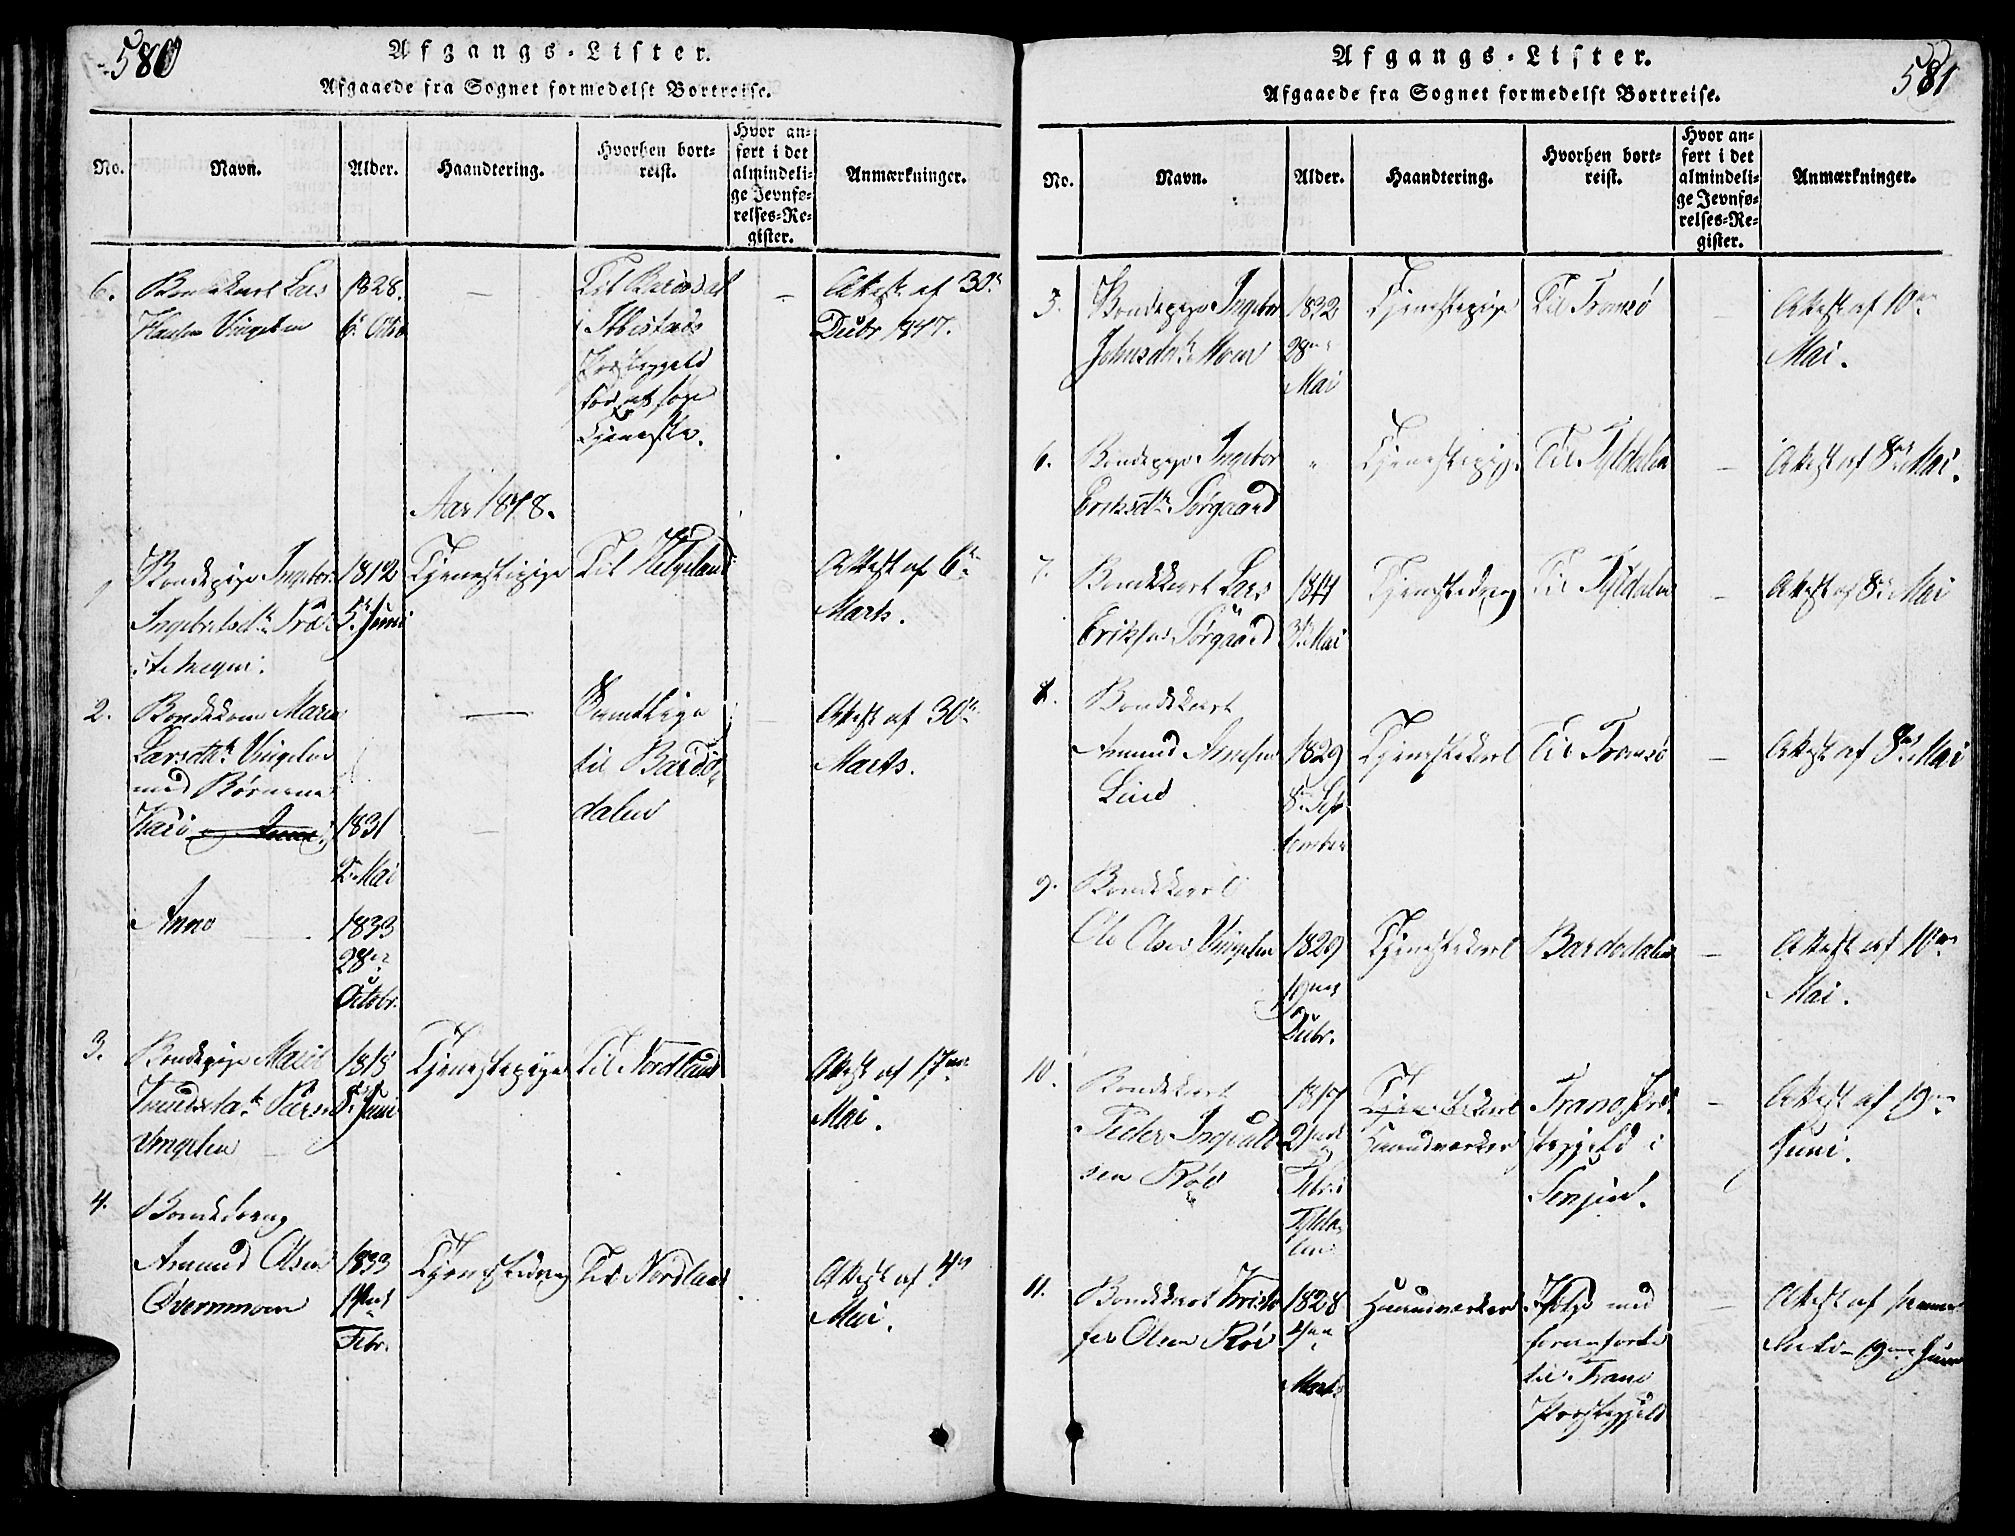 580
Afgangs-Lister.
Afgaaede fra Sognet formedelst Bortreise.
No.
Navn.
Alder.
Haandtering.
Hvorhen bort-
reist.
Hvor an-
ført i det
almindeli-
ge Jevnfø-
relses-Re-
gister.
Anmærkninger.
6.
Bondekarl Lars
Hansen Vingelen
1828.
6 Octbr
—
Til Bardo
i Ibestads
Præstegjeld
for at søge
Tjeneste.
Attest af 30te
Decbr 1847.
Aar 1848.
1
Bondepige Ingebor
Ingebrigtsdtr
1812
5te Juni
Tjenestepige
Til Helgeland
Attest af 6te
Marts.
2.
Bondekone Marit
Larsdtr Vingelen
med Børnene
Kari
1831
2 Mai
Anne
1833
28de
Octobr.
—
Samtlige
til Bardo
dalen
Attest af 30te
Marts.
3.
Bondepige Marit
Knudsdtr
Vingelen
1815
8 Juni
Tjenestepige
Til Nordland
Attest af 17de
Mai.
4.
Bondedreng
Amund Olsen
Øvermoen
1833
Febr.
Tjenestedreng
Til Nordland
Attest af 4de
Mai.
581
Afgangs-Lister.
Afgaaede fra Sognet formedelst Bortreise.
No.
Navn.
Alder.
Haandtering.
Hvorhen bort-
reist.
Hvor an-
ført i det
almindeli-
ge Jevnfø-
relses-Re-
gister.
Anmærkninger.
5.
Bondepige Ingebor
Johnsdtr Moen
1832
28de
Mai
Tjenestepige
Til Tromsø
Attest af 10de
Mai.
6.
Bondepige Ingebor
Eriksdtr Sørgaard
Tjenestepige
Til Tyldalen
—
Attest af 8de Mai.
7.
Bondekarl Lars
Eriksen Sørgaard
Mai
Tjenestedreng
Til Tyldalen
—
Attest af 8de Mai
8.
Bondekarl
Amund Arnesen
Lund
1829
8de Sep
tember
Tjenestekarl
Til Tromsø
—
Attest af 8de Mai
9.
Bondekarl
Ole Olsen Vingelen
1829
19de
Decbr.
Tjenestekarl
Bardodalen
—
Attest af 10de
Mai.
10.
Bondekarl
Peder Ingvald
sen Røe
1817
2den
Febr. i
Tylda
len
Tjenestekarl
Haandværker
Tranø Præ
stegjeld i
Senjen.
—
Attest af 19de
Juni.
11.
Bondekarl Kristo
fer Olsen Røe
1828
4de
Marts
Haandværker
Følge med
foranførte
til Tranø
Præstegjeld
—
Attest af samme
Dato 19de Juni